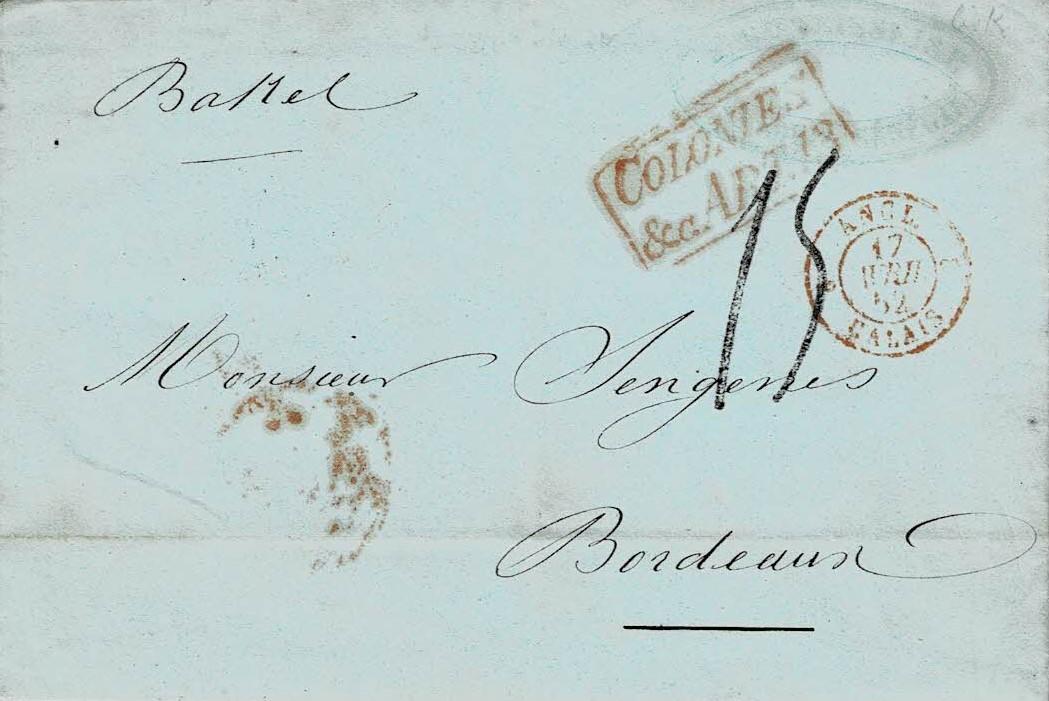 Bakel
COLONIES
&c. ART. 13
15
ANGL.
17
AVRIL
52
CALAIS
Monsieur Sengenes
Bordeaux